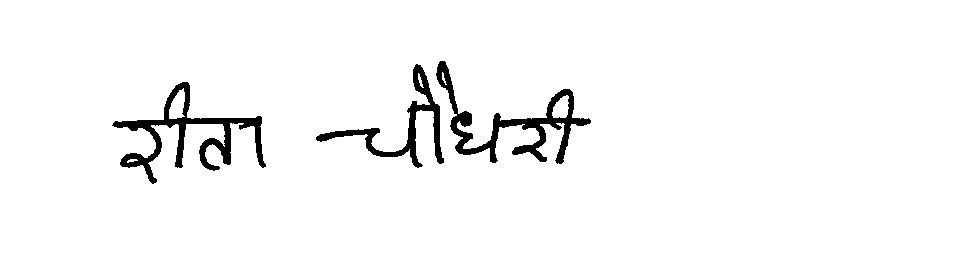 रीता चौधरी